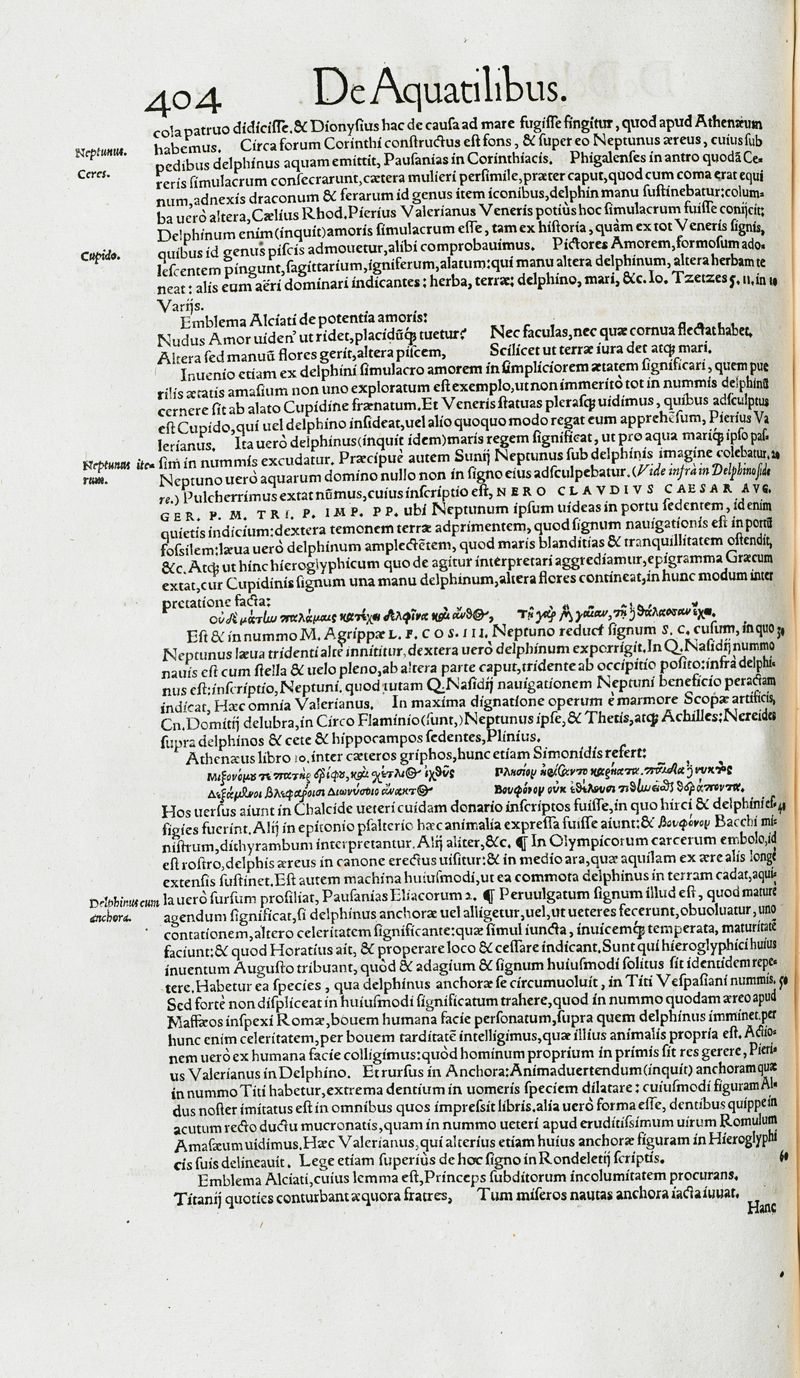 404 De Aquatilibus.
cola patruo didicisse.& Dionysius hac de causa ad mare fugisse fingitur, quod apud Athenæum
habemus. Circa forum Corinthi constructus est fons, & super eo Neptunus æreus, cuius sub
Neptunus.
pedibus delphinus aquam emittit, Pausanias in Corinthiacis. Phigalenses in antro quodã Ce-
Ceres.
reris simulacrum consecrarunt, cætera mulieri persimile, præter caput, quod cum coma erat equi
num, adnexis draconum & ferarum id genus item iconibus, delphin manu sustinebatur: colum-
ba uerò altera, Cælius Rhod. Pierius Valerianus Veneris potiùs hoc simulacrum fuisse conijcit:
Delphinum enim (inquit) amoris simulacrum esse, tam ex historia, quàm ex tot Veneris signis,
quibus id genus piscis admouetur, alibi comprobauimus. Pictores Amorem, formosum ado-
Cupido.
lescentem pingunt, sagittarium, igniferum, alatum: qui manu altera delphinum, altera herbam te
neat: alis eum aëri dominari indicantes: herba, terræ: delphino, mari, &c. Io. Tzetzes 5. 11. in 10
Varijs.
Emblema Alciati de potentia amoris:
Nudus Amor uiden' ut ridet, placidũq; tuetur? Nec faculas, nec quæ cornua flectat habet.
Altera sed manuũ flores gerit, altera piscem, Scilicet ut terræ iura det atq; mari.
Inuenio etiam ex delphini simulacro amorem in simpliciorem ætatem significari, quem pue
rilis ætatis amasium non uno exploratum est exemplo, ut non immeritò tot in nummis delphinũ
cernere sit ab alato Cupidine frænatum. Et Veneris statuas plerasq; uidimus, quibus adsculptus
est Cupido, qui uel delphino insideat, uel alio quoquo modo regat eum apprehēsum, Pierius Va
lerianus. Ita uerò delphinus (inquit idem) maris regem significat, ut pro aqua mariq; ipso pas-
Neptunus ite-
rum.
sim in nummis excudatur. Præcipuè autem Sunij Neptunus sub delphinis imagine colebatur. 20
Neptuno uerò aquarum domino nullo non in signo eius adsculpebatur. (Vide infrà in Delphino side
re.) Pulcherrimus extat nũmus, cuius inscriptio est, NERO CLAVDIVS CAESAR AVG.
GER. P. M. TRI. P. IMP. PP. ubi Neptunum ipsum uideas in portu sedentem, id enim
quietis indicium: dextera temonem terræ adprimentem, quod signum nauigationis est in portũ
fossilem: læua uerò delphinum amplectētem, quod maris blanditias & tranquillitatem ostendit,
&c. Atq; ut hinc hieroglyphicum quo de agitur interpretari aggrediamur, epigramma Græcum
extat, cur Cupidinis signum una manu delphinum, altera flores contineat, in hunc modum inter
pretatione facta:
οὐδὲ μάτην παλάμαις κατέχει δελφῖνα καὶ ἄνθος, τῇ μὲν γὰρ γαῖαν, τῇ δὲ θάλασσαν ἔχει.
Est & in nummo M. Agrippæ L. F. COS. III. Neptuno reduci signum S. C. cusum, in quo 30
Neptunus læua tridenti altè innititur, dextera uerò delphinum exporrigit. In Q. Nasidij nummo
nauis est cum stella & uelo pleno, ab altera parte caput, tridente ab occipitio posito: infrà delphi-
nus est: inscriptio, Neptuni. quod tutam Q. Nasidij nauigationem Neptuni beneficio peractam
indicat, Hæc omnia Valerianus. In maxima dignatione operum è marmore Scopæ artificis,
Cn. Domitij delubra, in Circo Flaminio (sunt,) Neptunus ipse, & Thetis, atq; Achilles: Nereides
supra delphinos & cete & hippocampos sedentes, Plinius.
Athenæus libro 10. inter cæteros griphos, hunc etiam Simonidis refert:
Μιξονόμου τε πατὴρ ἐρίφου, καὶ σχέτλιος ἰχθῦς Πλησίον ἠρείσαντο καρήατα. παῖδα δὲ νυκτὸς
Δεξάμενοι βλεφάροισι Διωνύσοιο ἄνακτος Βουφόνον οὐκ ἐθέλουσι τιθηνεῖσθαι θεράποντα.
Hos uersus aiunt in Chalcide ueteri cuidam donario inscriptos fuisse, in quo hirci & delphini ef- 40
figies fuerint. Alij in epitonio psalterio hæc animalia expressa fuisse aiunt: & Βουφόνον Bacchi mi-
nistrum, dithyrambum interpretantur. Alij aliter, &c. ¶ In Olympicorum carcerum embolo, id
est rostro, delphis æreus in canone erectus uisitur: & in medio ara, quæ aquilam ex ære alis longè
extensis sustinet. Est autem machina huiusmodi, ut ea commota delphinus in terram cadat, aqui-
Delphinus cum
anchora.
la uerò sursum prosiliat, Pausanias Eliacorum 2. ¶ Peruulgatum signum illud est, quod maturè
agendum significat, si delphinus anchoræ uel alligetur, uel, ut ueteres fecerunt, obuoluatur, uno
contationem, altero celeritatem significante: quæ simul iuncta, inuicemq; temperata, maturitatē
faciunt: & quod Horatius ait, & properare loco & cessare indicant. Sunt qui hieroglyphici huius
inuentum Augusto tribuant, quòd & adagium & signum huiusmodi solitus sit identidem repe-
tere. Habetur ea species, qua delphinus anchoræ se circumuoluit, in Titi Vespasiani nummis. 50
Sed fortè non displiceat in huiusmodi significatum trahere, quod in nummo quodam æreo apud
Maffæos inspexi Romæ, bouem humana facie personatum, supra quem delphinus imminet. per
hunc enim celeritatem, per bouem tarditatē intelligimus, quæ illius animalis propria est. Actio-
nem uerò ex humana facie colligimus: quòd hominum proprium in primis sit res gerere, Pieri-
us Valerianus in Delphino. Et rursus in Anchora: Animaduertendum (inquit) anchoram quæ
in nummo Titi habetur, extrema dentium in uomeris speciem dilatare: cuiusmodi figuram Al-
dus noster imitatus est in omnibus quos impressit libris. alia uerò forma esse, dentibus quippe in
acutum recto ductu mucronatis, quam in nummo ueteri apud eruditissimum uirum Romulum
Amasæum uidimus. Hæc Valerianus, qui alterius etiam huius anchoræ figuram in Hieroglyphi
cis suis delineauit. Lege etiam superiùs de hoc signo in Rondeletij scriptis. 60
Emblema Alciati, cuius lemma est, Princeps subditorum incolumitatem procurans.
Titanij quoties conturbant æquora fratres, Tum miseros nautas anchora iacta iuuat.
Hanc